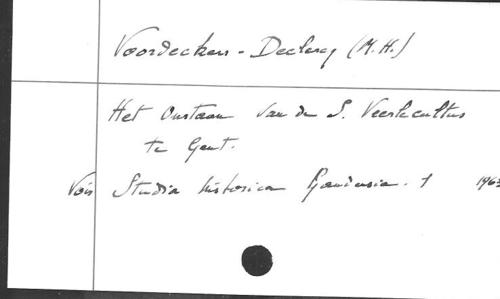 Voordeckers - Declercq (M.H.)
Het Ontstaan van de S. Veerlecultus
te Gent.
Voir Studia historica Gandensia. 1